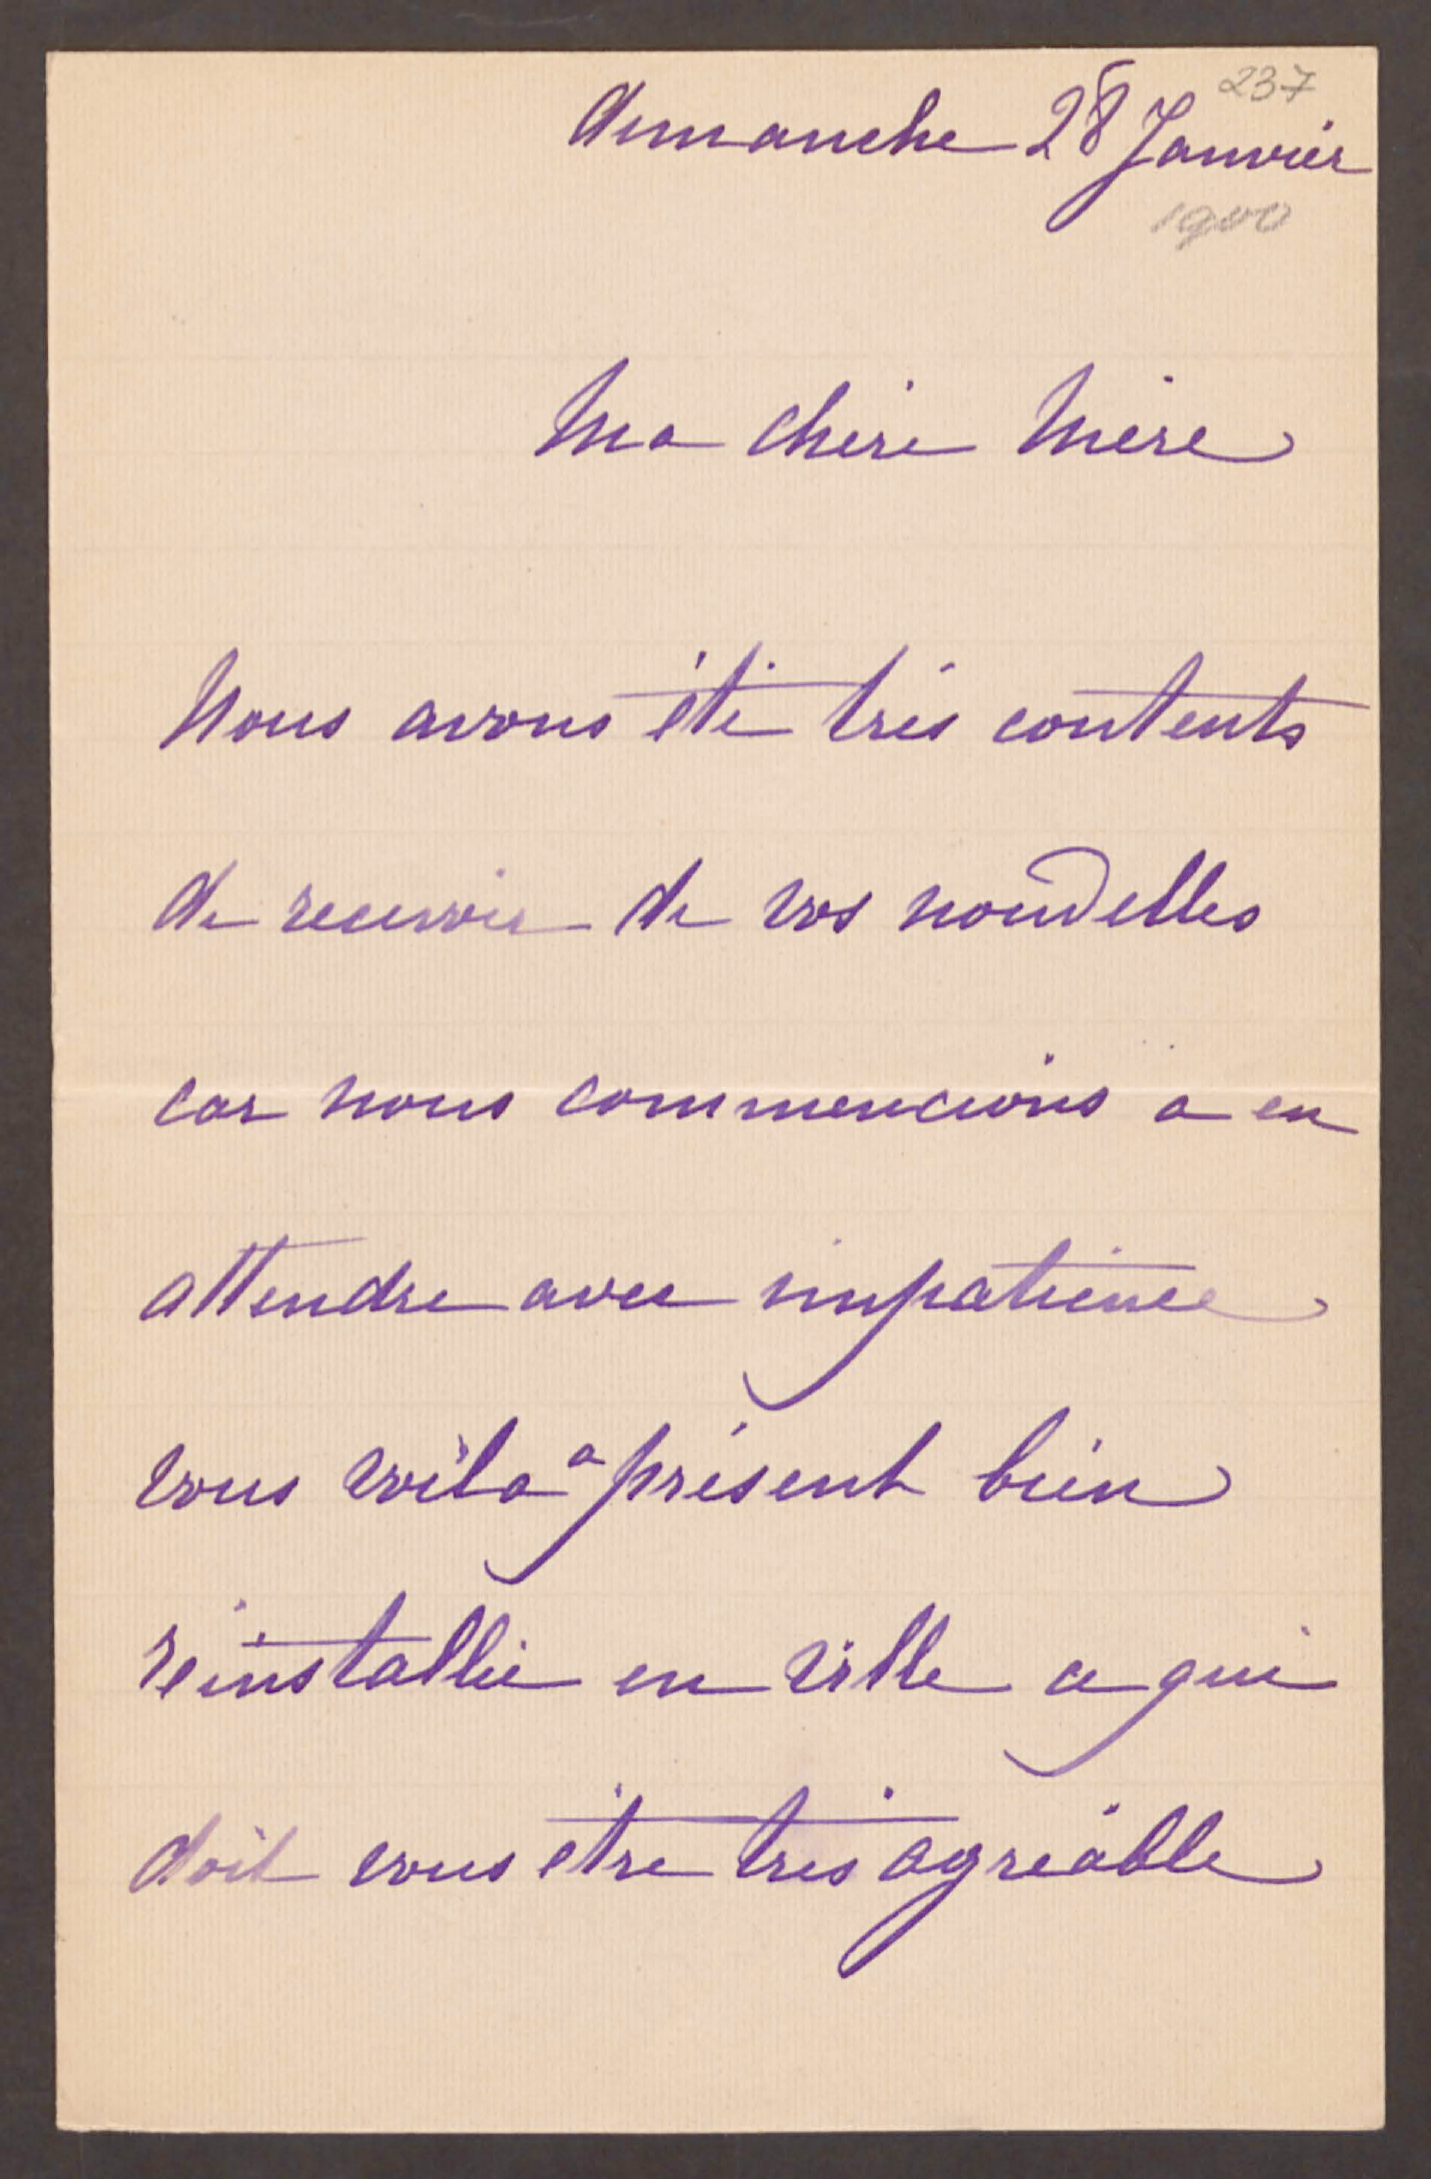 237
dimanche 28 Janvier
1900
Ma chère Mère
Nous avons été très contents
de recevoir de vos nouvelles
car nous commencions a en
attendre avec impatience
vous voila a présent bien
réinstallée en ville ce qui
doit vous être très agréable